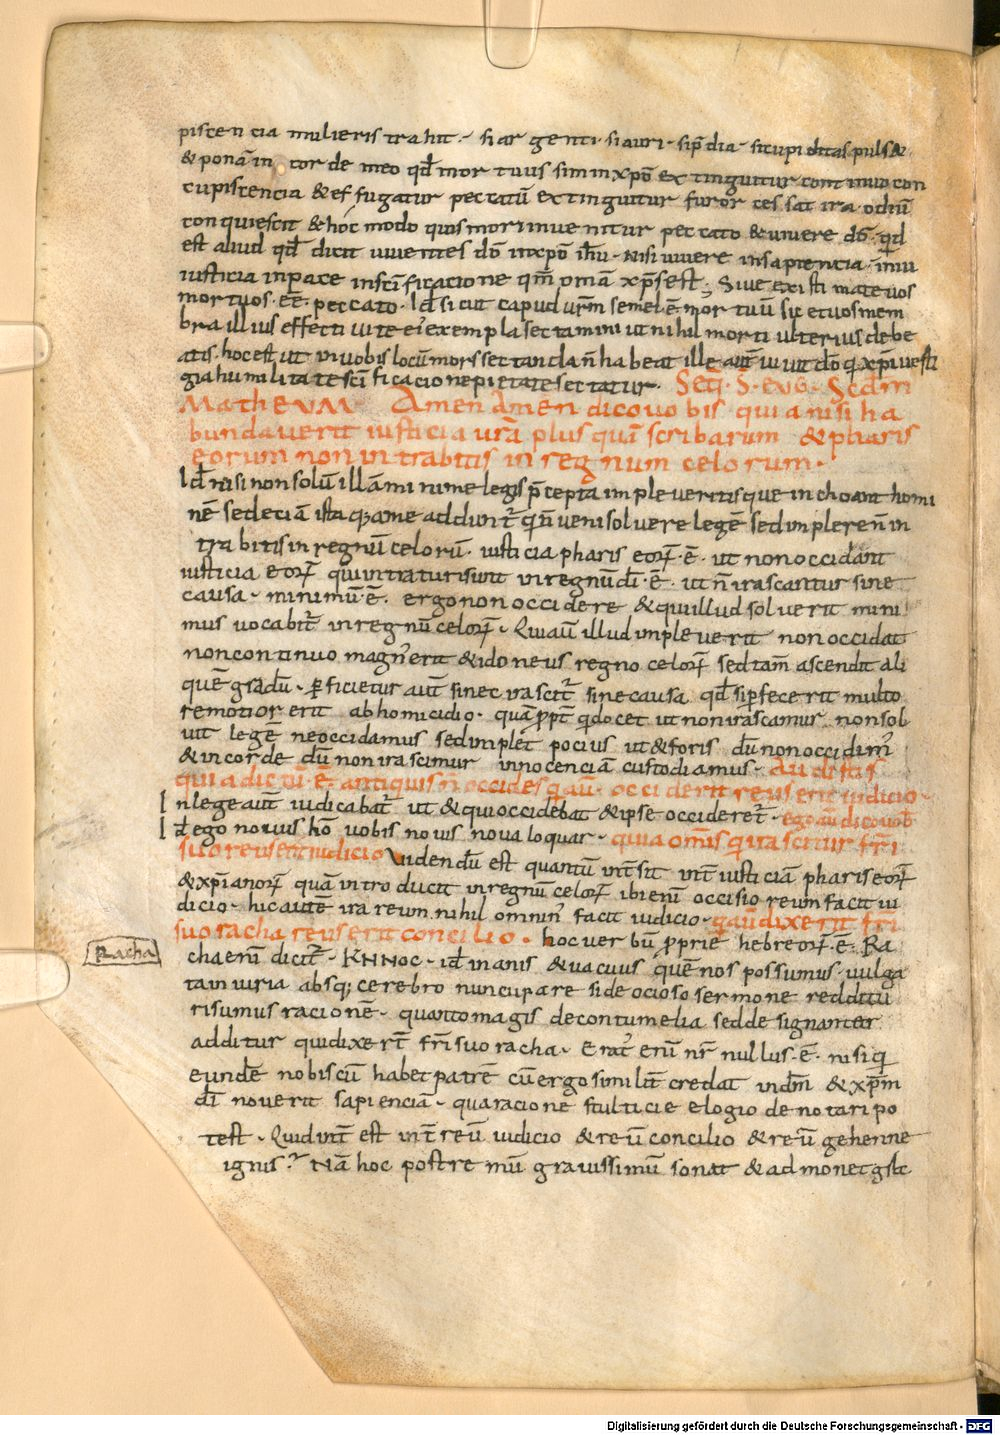 piscencia mulieris trahit · si argenti · si auri · sip̄dia · sicupiditas pulsa&
& ponā in cor de meo qd̄ mortuus sim in xp̄o extinguitur continuo con
cupiscencia & effugatur peccatū extinguitur furor cessat ira odiū
conquiescit & hoc modo quis mori invenitur peccato & vivere dō · qd̄
est aliud qd̄ dicit viventes dō in xp̄o ih̄u · nisi vivere in sapiencia · in iu
iusticia in pace in sc̄ificacione qm̄ om̄a xp̄s est ; Sive existimate vos
mortuos · eē · peccato · Id̄ sicut capud vr̄m semel · ē mortuū sic et vos mem
bra illius effecti vite ei exempla sectamini ut nihil morti ulterius debe
atis · hoc est ut in vobis locū mors sectanda n̄ habeat ille aut̄ vivit dō q xp̄i vesti
gia humilitate sc̄ificacione pietate sectatur · Seq̄ · S · evg · Secdm
Matheum Amen Amen dico vobis quia nisi ha
bundaverit iusticia vrā plus quā scribarum & pharis
eorum non intrabitis in regnum celorum ·
Id̄ nisi non solū illa minime legis p̄cepta impleveritis que inchoant homi
nē sed eciā ista q; a me addunt̄ q̄ n̄ veni solvere legē sed implere n̄ in
trabitis in regnū celorū · iusticia phariseorꝝ · ē · ut non occidant
iusticia eorꝝ qui intraturi sunt in regnū dī · ē · ut n̄ irascantur sine
causa · minimū · ē · ergo non occidere & qui illud solverit mini
mus vocabit̄ in regnū celorꝝ · Qui aū illud impleverit non occidat
non continuo magn̄ erit & idoneus regno celorꝝ sed tam̄ ascendit ali
quē gradū · p̄ficietur aut̄ si nec irascit̄ sine causa qd̄ si p̄fecerit multo
remotior erit ab homicidio · quā p̄pt̄ q docet ut non irascamur non sol
vit legē ne occidamus sed implet pocius ut & foris dū non occidim̄
& in corde dū non irascimur innocenciā custodiamus · Audistis
quia dictū · ē · antiquis n̄ occides q aū · occiderit reus erit iudicio ·
In lege aut̄ iudicabat̄ ut & qui occidebat & ipse occideret̄ · ego aū dico vob̄
Id̄ ego novus hō vobis novis nova loquar · quia om̄is qui irascitur fr̄i
suo reus erit iudicio Videndū est quantū int̄sit int̄ iusticiā phariseorꝝ
& xp̄ianorꝝ quā introducit in regnū celorꝝ ibi enī occisio reum facit iu
dicio · hic autē ira reum nihil omnin̄ facit iudicio · q aū dixerit fr̄i
suo racha reus erit concilio · hoc verbū p̄prie hebreorꝝ · ē · Ra
cha enī dicit̄ · KHNOC · id̄ inanis & vacuus quē nos possumus vulga
ta iniuria absq; cerebro nuncupare si de ocioso sermone reddituri
risumus racionē · quanto magis de contumelia sed designanter
additur qui dixert̄ fr̄i suo racha · Erat̄ enī nr̄ nullus · ē · nisi q
eundē nobiscū habet patrē cū ergo similit̄ credat in dm̄ & xp̄m
dī noverit sapienciā · qua racione stulticie elogio denotari po
test · Quid int̄ est int̄ reū iudicio & reū concilio & reū gehenne
ignis ? Nā hoc postremū gravissimū sonat & admonet gsdc
Racha
Digitalisierung gefördert durch die Deutsche Forschungsgemeinschaft - DFG